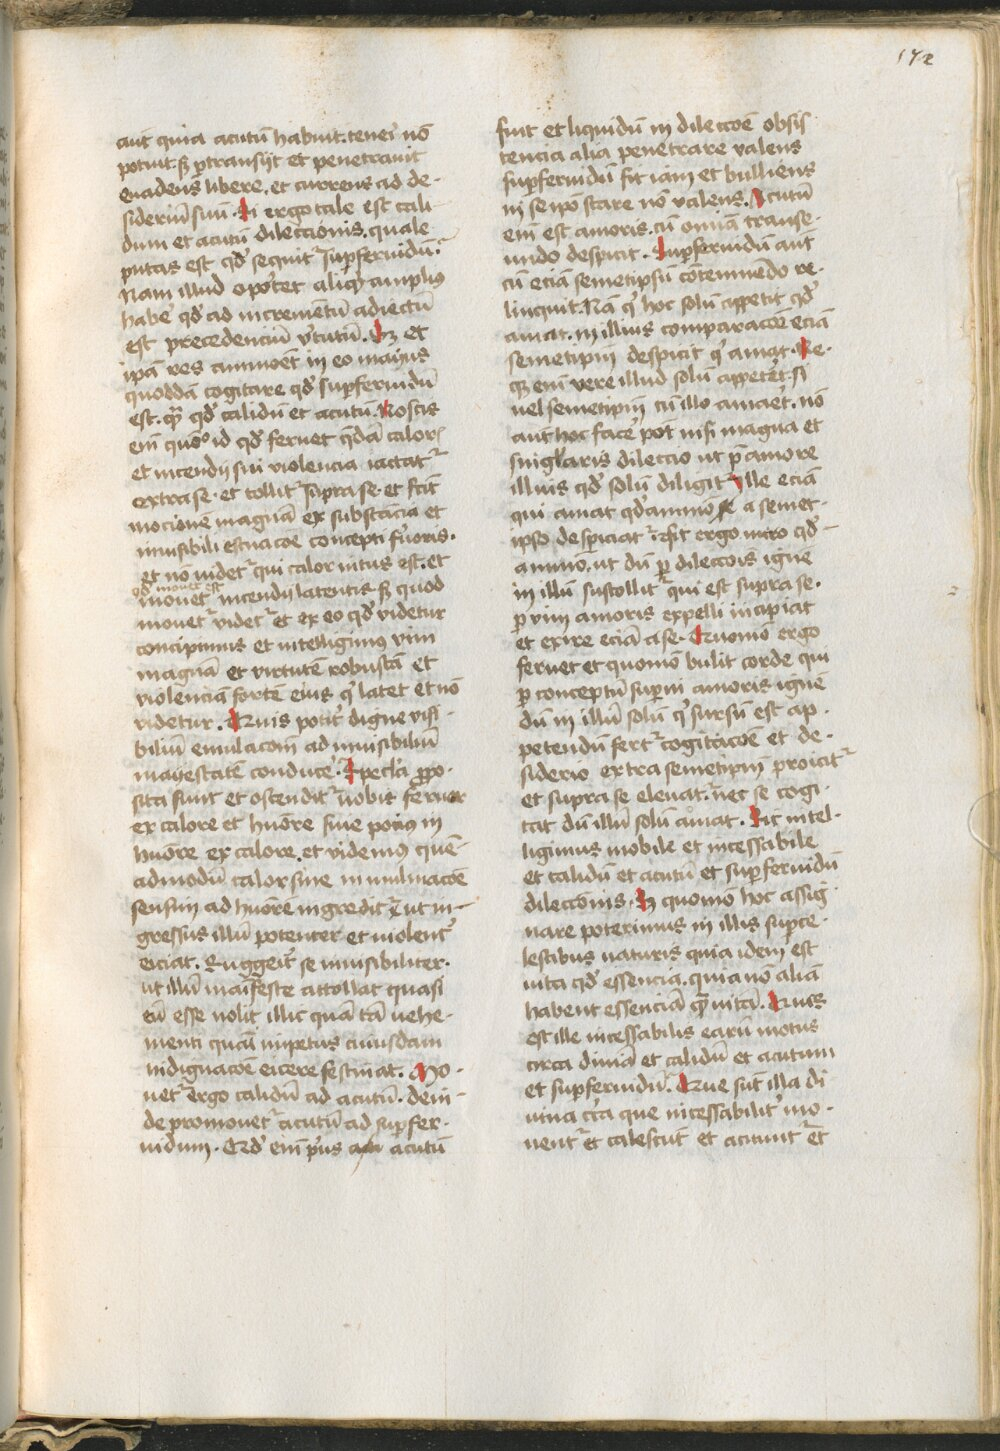 172
aut quia acutū habuit. teneī nō
potuit. s̄ ꝑtransijt et penetrauit
euadens libere. et currens ad de-
sideriū suū. Si ergo tale est cali
dum et acutū dileccionis. quale
putas est qđ sequit᷑ suꝑferuidū.
Nam illud oportet aliqͥd amplius
habē qđ ad incrementū adiectū
est precedenciū v̓tutū. Sꝫ et
ipā res ammoēt in eo maius
quoddā cogitare qđ suꝑferuidū
est. quā qđ calidū et acutū. Noscis
em̄ quōº id qđ feruet qͣdā caloris
et incendij sui violencia iactat᷑
extra se. et tollit᷑ supra se. et fert
mocionē magnā ex substācia et
inuisibili estuacōe concepti fūoris.
et nō uidet᷑ qui calor intus est. et
qđ mouet est
mouet᷑ incendij latentis s̄ quod
mouet᷑ videt᷑ et ex eo qđ videtur
concipimus et intelligimus vim
magnā et virtutē robustā et
violenciā fortē eius qͥ latet et nō
videtur. Quis potit̓ digne visi-
biliū emulacōm ad inuisibiliū
maiestatē conducē. Specl̓a ꝓpo-
sita sunt et ostendit᷑ nobis feruor
ex calore et huōre siue potius in
huōre ex calore. et videmus quē-
admodū calor siue in mūlnacōe
sensim ad huōrē ingredit᷑ ut in-
gressus illū potenter et violent̓
eiciat. Suggerit̓ se inuisibiliter.
ut illū māifeste attollat quasi
eū esse nolit illic quā tā uehe-
menti quā impetus cuiusdam
indignacōe eicere festinat. Mo-
uet᷑ ergo calidū ad acutū. dein-
de promouet᷑ acutū ad suꝑfer-
uidum. Qđ em̄ pͥus acutū
fuit et liquidū in dileccōe obsis
tencia alia penetrare valens
suꝑferuidū fit iam et bulliens
in se ipo stare nō valens. Acutū
em̄ est amoris. cū omīa transe-
undo despicit. Suꝑferuidū aūt
cū eciā semetipsū cōtemnēdo re-
linquit. Nā qͥ hoc solū appetit qđ
amat. in illius comparacōe eciā
semetipm̄ despicit qͥ amat. Ne-
qꝫ em̄ vere illud solū appetēt. si
uel semetipm̄ cū illo amaēt. nō
aūt hoc facē pot nisi magna et
singularis dileccio ut p̄ amore
illius qđ solū diligit᷑ ille eciā
qui amat qđāmō se a semet-
ipso despiciat᷑. fit ergo miro qđ-
āmō. ut dū ꝑ dileccōis ignē
in illū sustollit᷑ qui est supra se.
ꝑ vim amoris expelli incipiat
et exire eciā a se. Quomō ergo
feruet et quomō bulit corde qui
ꝑ conceptū suꝑni amoris ignē
dū in illū solū qͥ sursū est ap-
petendū fert᷑ cogitacōe et de-
siderio extra semetipm̄ proicit᷑
et supra se eleuat᷑. nec se cogi-
tat dū illū solū amat. Sic intel-
ligimus mobile et incessabile
et calidū et acutū et suꝑferuidū
dileccōnis. Sꝫ quomō hoc assig
nare poterimus in illis suꝑce-
lestibus naturis quia idem est
uita qđ essencia. quia nō aliā
habent essenciā qͣ̄ uitā. Quis
est ille incessabilis earū motus
circa diuīa et calidū et acutum
et suꝑferuidū. Que sūt illa di
uina cͥca que incessabilit̓ mo-
uent᷑ et calescūt et acuūt᷑ et